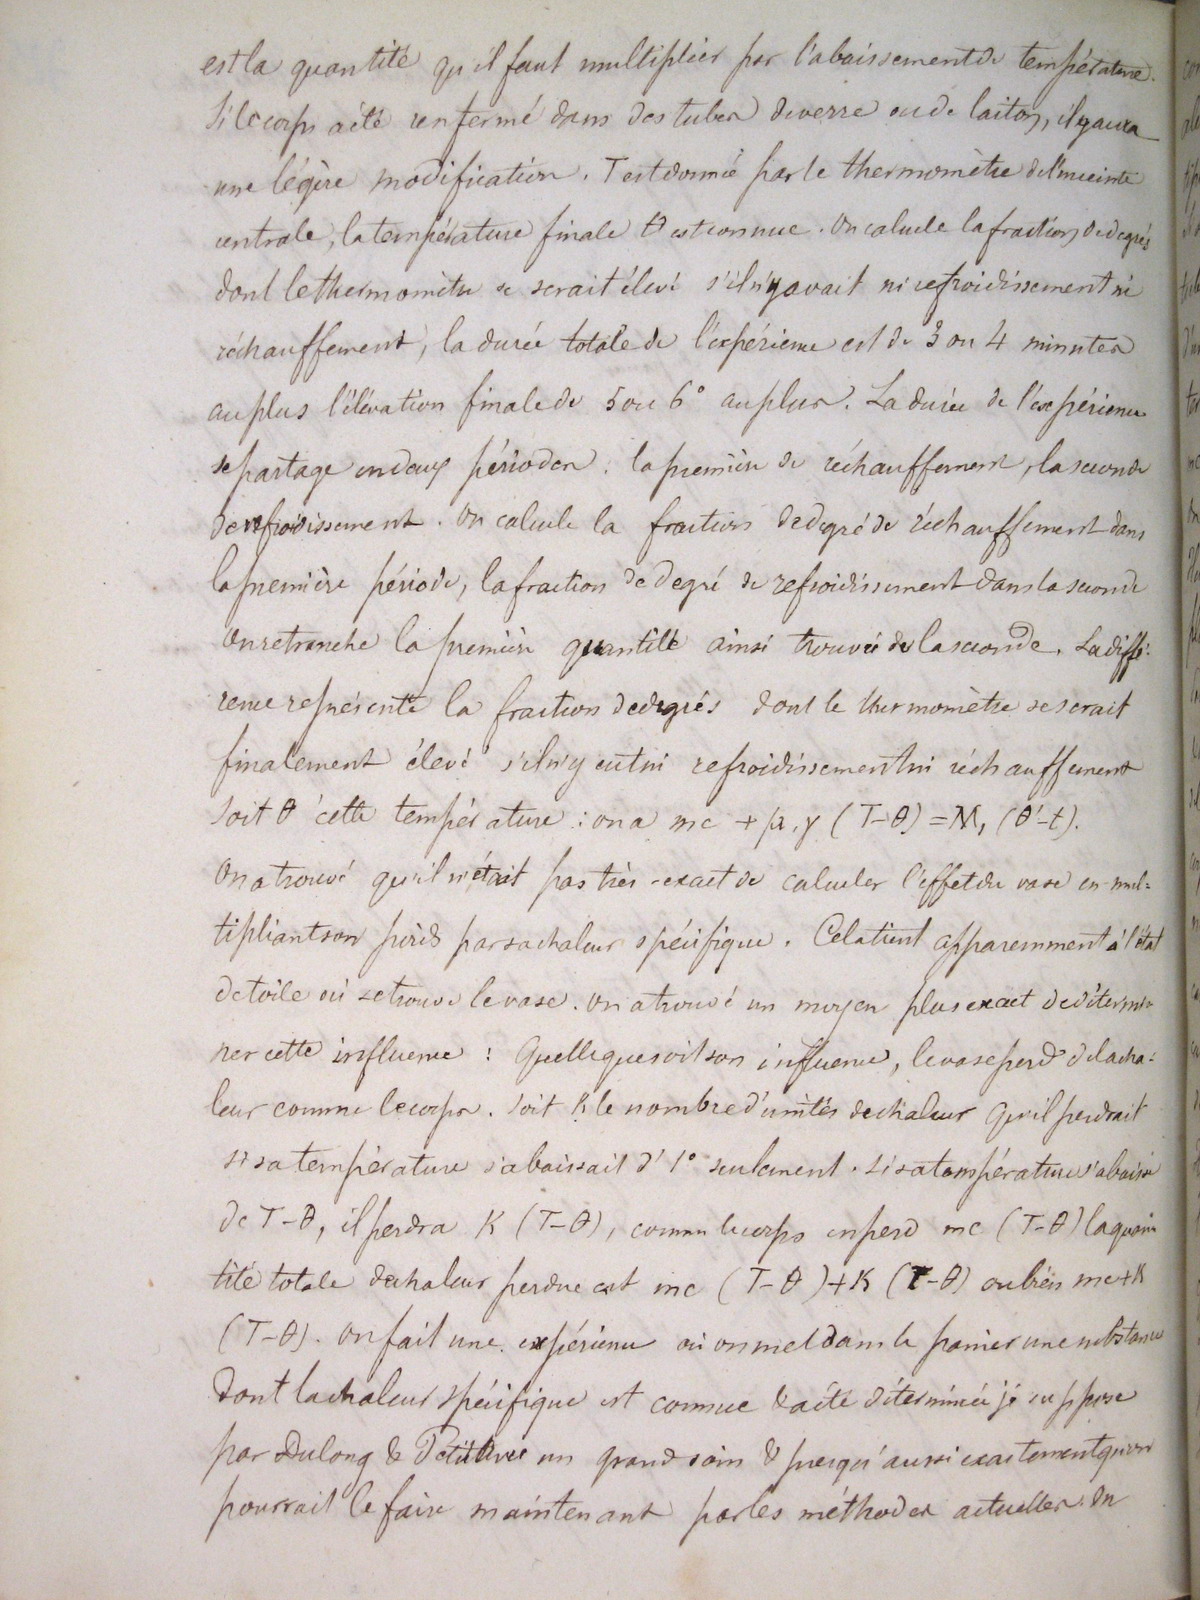 est la quantité qu'il faut multiplier par l'abaissement de température.
Si le corps a été renfermé dans des tubes de verre ou de laiton, il y aura
une légère modification. T est donnée par le thermomètre de l'enceinte
centrale, la température finale θ est connue. On calcule la fraction de degrés
dont le thermomètre se serait élevé s'il n'y avait ni refroidissement ni
réchauffement, la durée totale de l'expérience est de 3 ou 4 minutes
au plus l'élévation finale de 5 ou 6° au plus. La durée de l'expérience
se partage en deux périodes : la première de réchauffement, la seconde
de refroidissement. On calcule la fraction de degré de réchauffement dans
la première période, la fraction de degré de refroidissement dans la seconde
On retranche la première quantité ainsi trouvée de la seconde. La diffé-
rence représente la fraction de degrés dont le thermomètre se serait
finalement élevé s'il n'y eut ni refroidissement ni réchauffement
soit θ' cette température : on a mc + p.γ (T-θ) = M, (θ'-t).
On a trouvé qu'il n'était pas très-exact de calculer l'effet du vase en mul-
tipliant son poids par sa chaleur spécifique. Cela tient apparemment à l'état
de toile où se trouve le vase. On a trouvé un moyen plus exact de détermi-
ner cette influence : Quelle que soit son influence, le vase perd de la cha-
leur comme le corps. Soit K le nombre d'unités de chaleur qu'il perdrait
si sa température s'abaissait d'1° seulement. Si sa température s'abaisse
de T-θ, il perdra K (T-θ), comme le corps en perd mc (T-θ) la quan-
tité totale de chaleur perdue est mc (T-θ) + K (T-θ) ou bien mc+K
(T-θ). On fait une expérience où on met dans le panier une substance
dont la chaleur spécifique est connue & a été déterminée je suppose
par Dulong & Petit avec un grand soin & presqu'aussi exactement qu'on
pourrait le faire maintenant par les méthodes actuelles. On